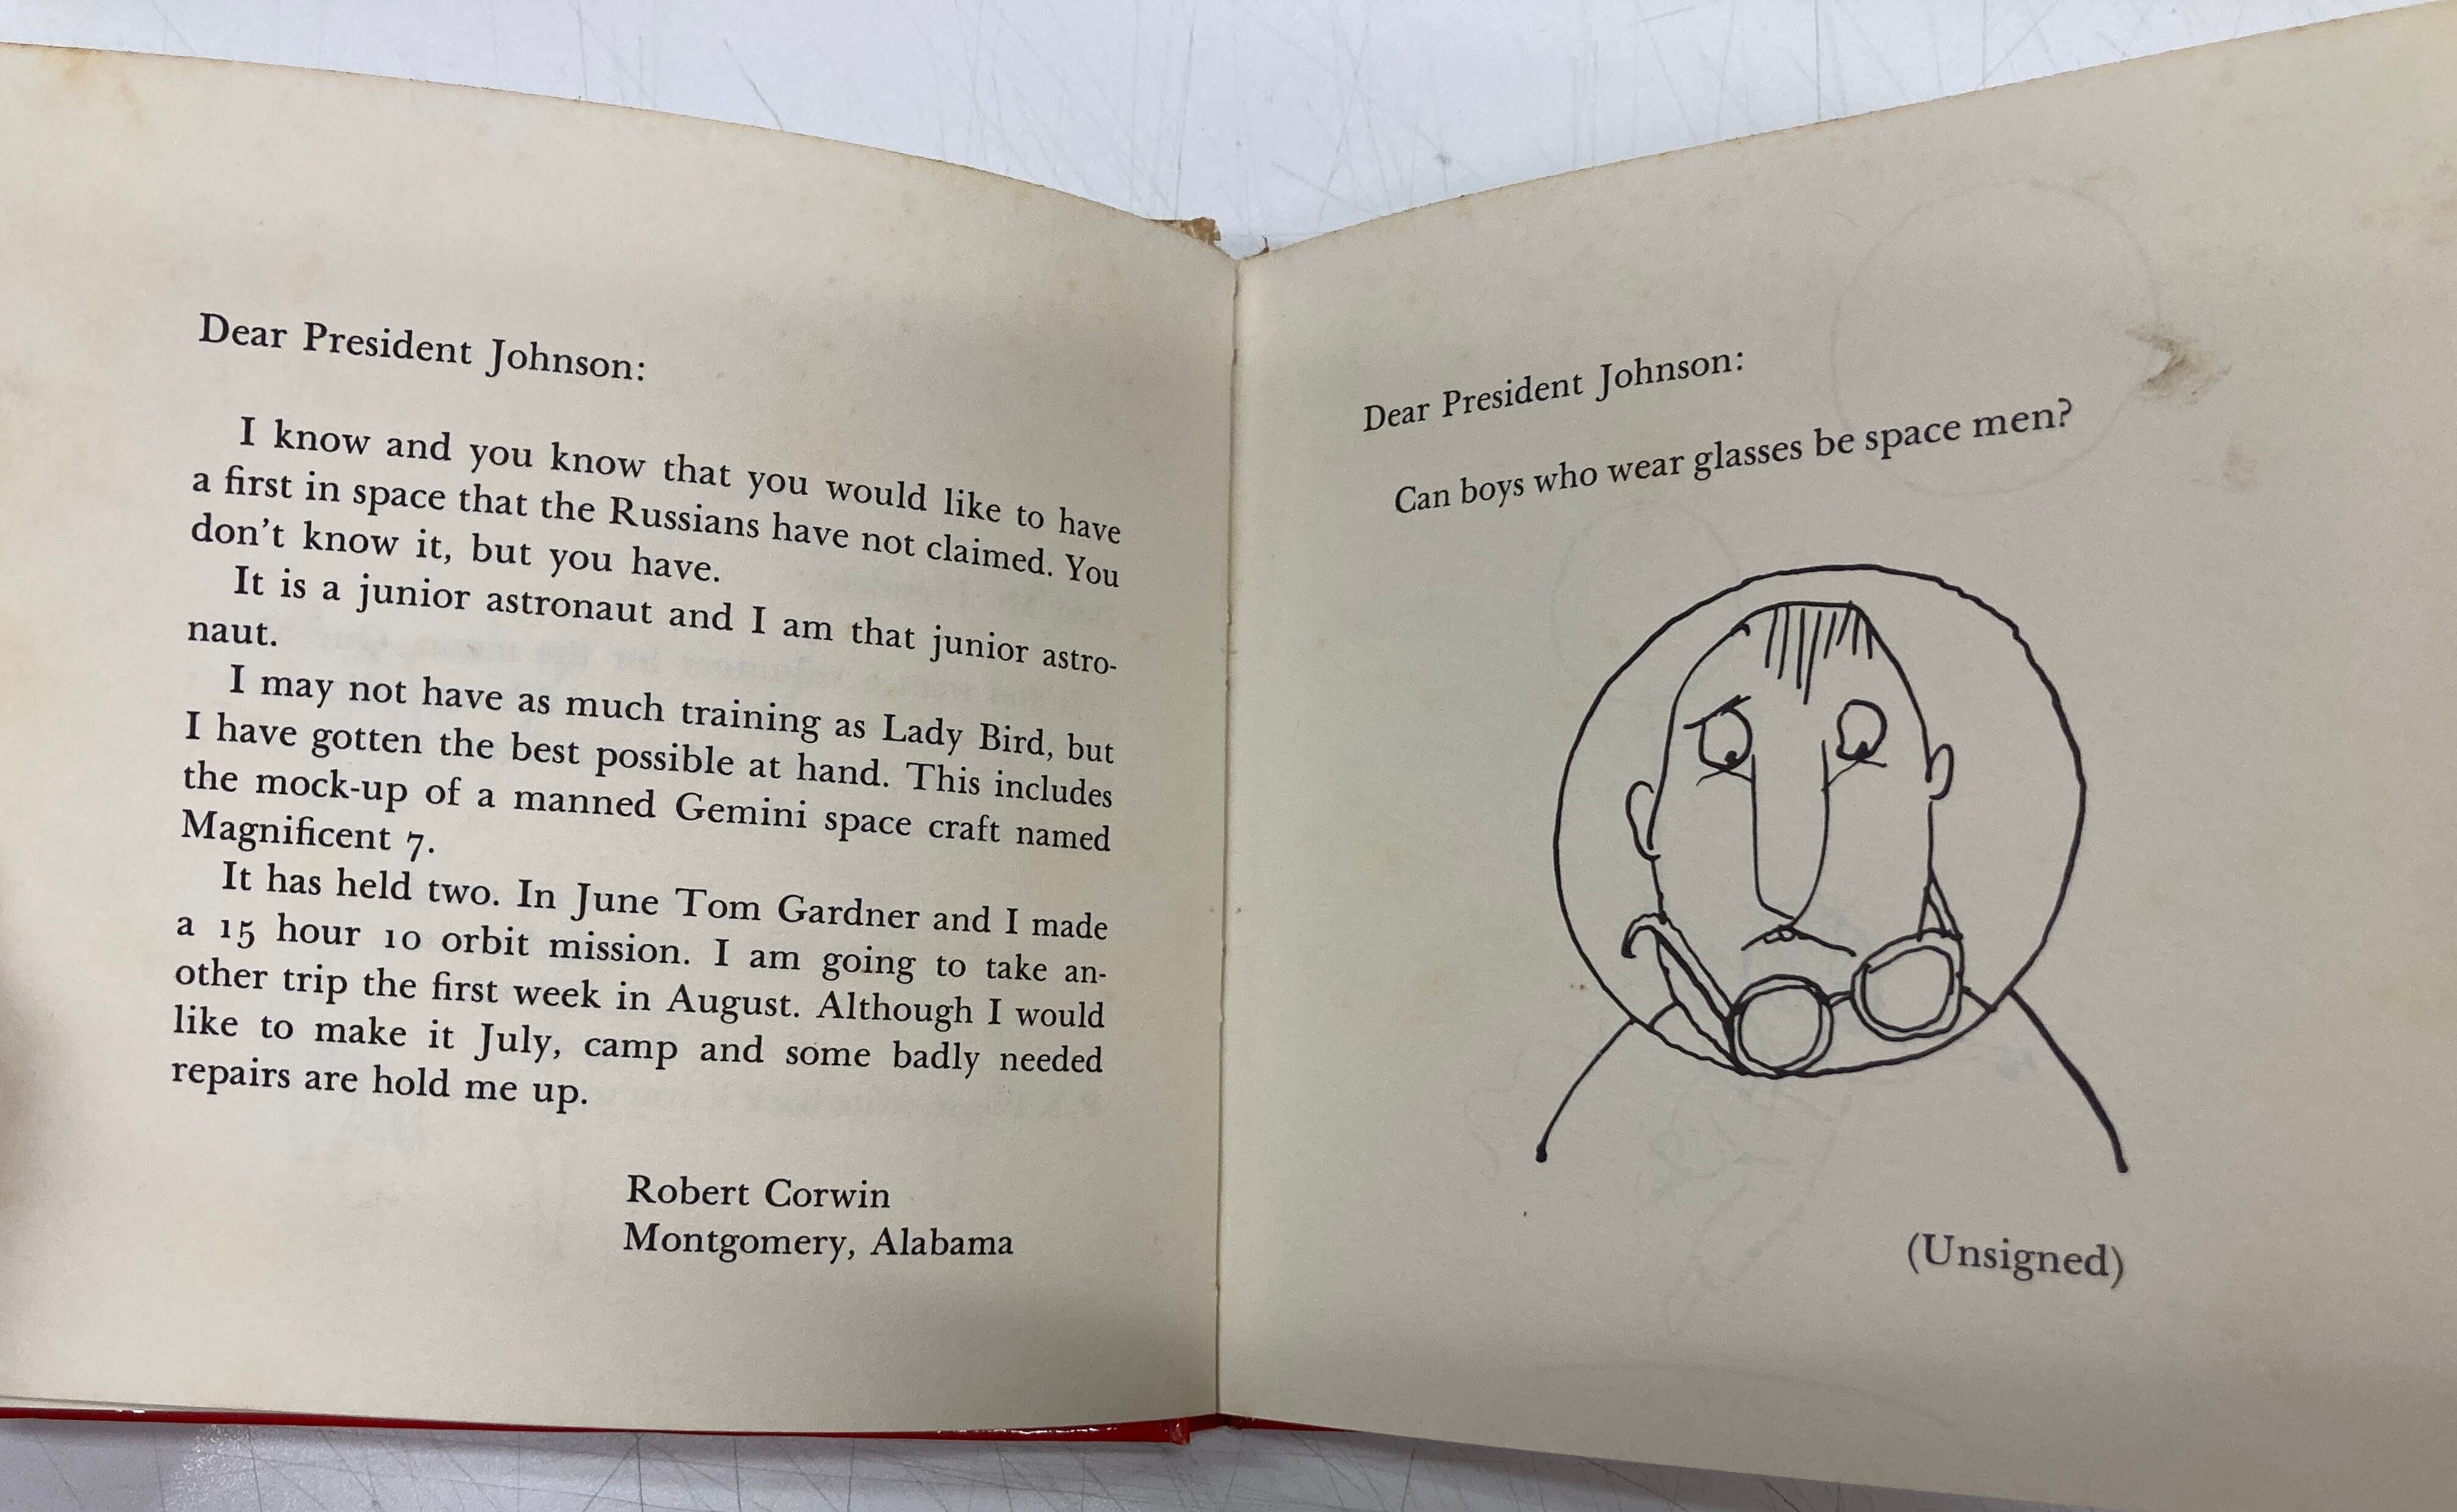 Dear President Johnson:
I know and you know that you would like to have
a first in space that the Russians have not claimed. You
don't know it, but you have.
It is a junior astronaut and I am that junior astro-
naut.
I may not have as much training as Lady Bird, but
I have gotten the best possible at hand. This includes
the mock-up of a manned Gemini space craft named
Magnificent 7.
It has held two. In June Tom Gardner and I made
a 15 hour 10 orbit mission. I am going to take an-
other trip the first week in August. Although I would
like to make it July, camp and some badly needed
repairs are hold me up.
Robert Corwin
Montgomery, Alabama
Dear President Johnson:
Can boys who wear glasses be space men?
(Unsigned)